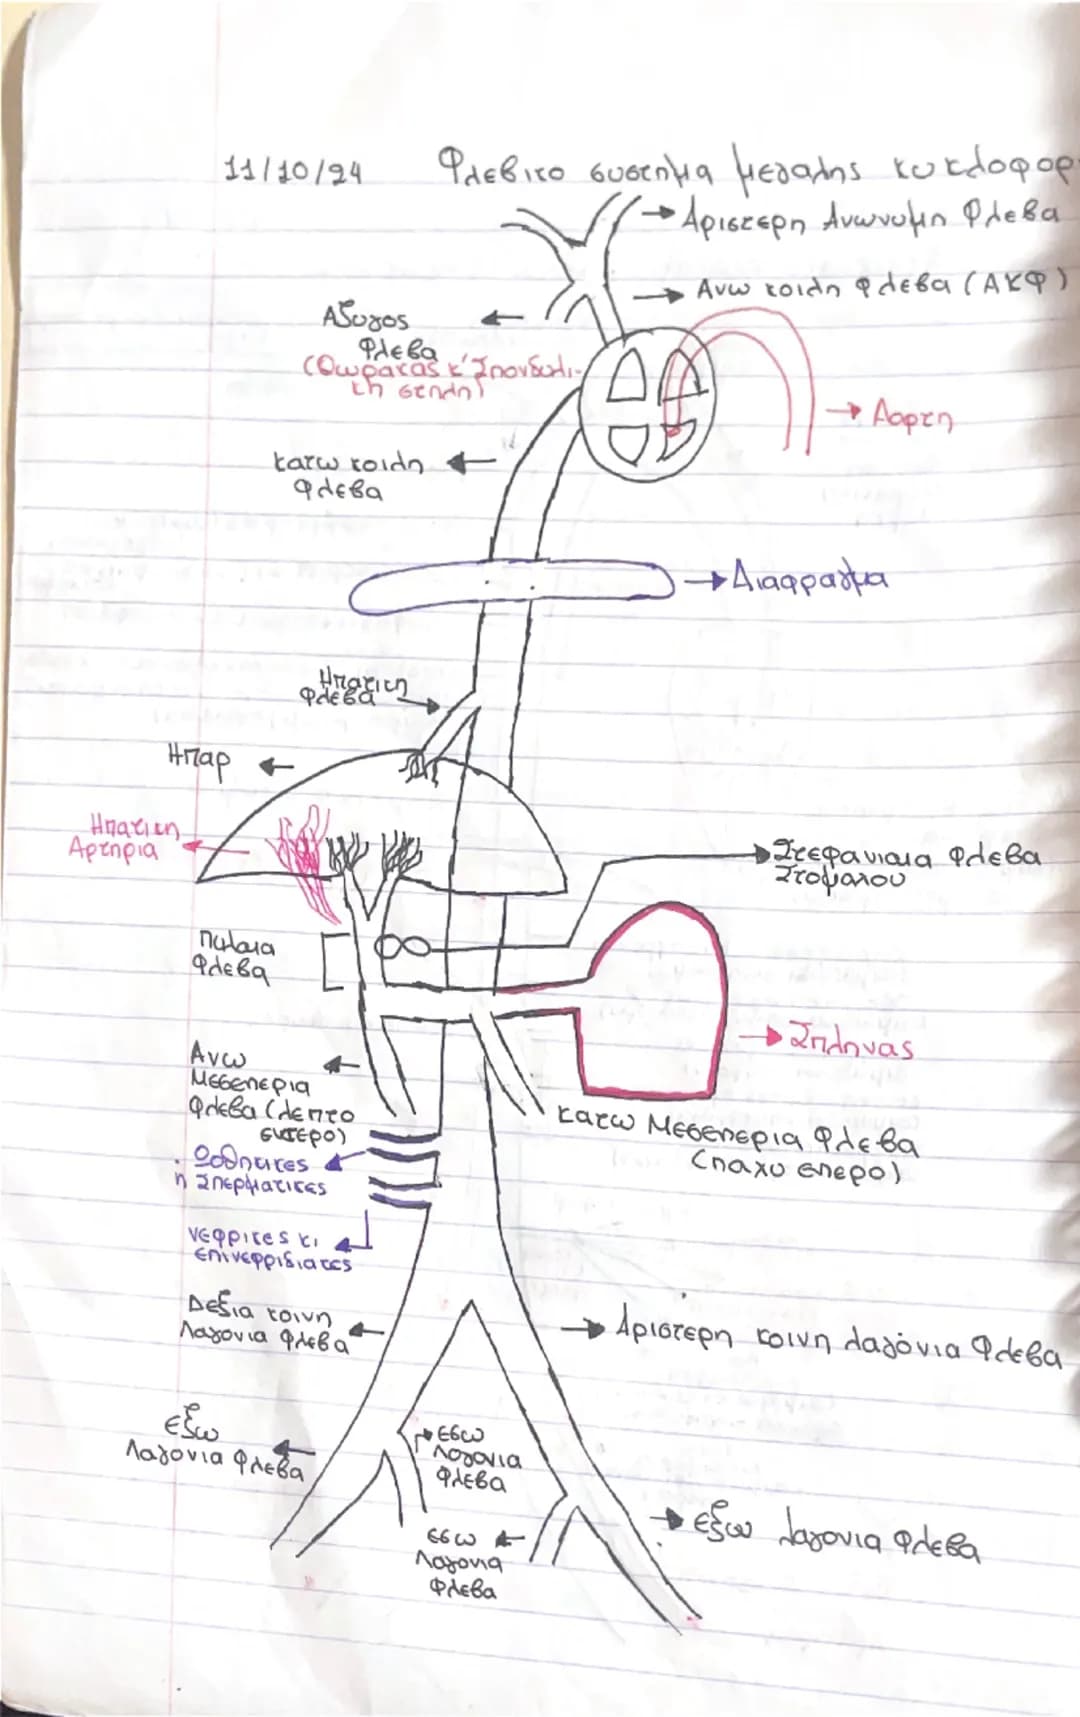 11/10/24 Φλεβικο συστημα μεγαλης κυκλοφορ
Αριστερη Ανωνυμη Φλεβα
Ανω κοιλη φλεβα (ΑΚΦ)
Αζυγος
Φλεβα
(Θωρακας κ' Σπονδυλι-
κη στηλη)
Αορτη
κατω κοιλη
φλεβα
Διαφραγμα
Ηπατικη
Φλεβα
Ηπαρ
Ηπατικη
Αρτηρια
Στεφανιαια Φλεβα
Στομαχου
Πυλαια
Φλεβα
Σπληνας
Ανω
Μεσεντερια
Φλεβα (λεπτο
εντερο)
κατω Μεσεντερια Φλεβα
(παχυ εντερο)
Ωοθηκικες
η Σπερματικες
νεφρικες κι
επινεφριδιακες
Δεξια κοινη
Λαγονια Φλεβα
Αριστερη κοινη λαγόνια Φλεβα
εξω
Λαγονια Φλεβα
εσω
Λαγονια
Φλεβα
εξω λαγονια Φλεβα
εσω
Λαγονια
Φλεβα